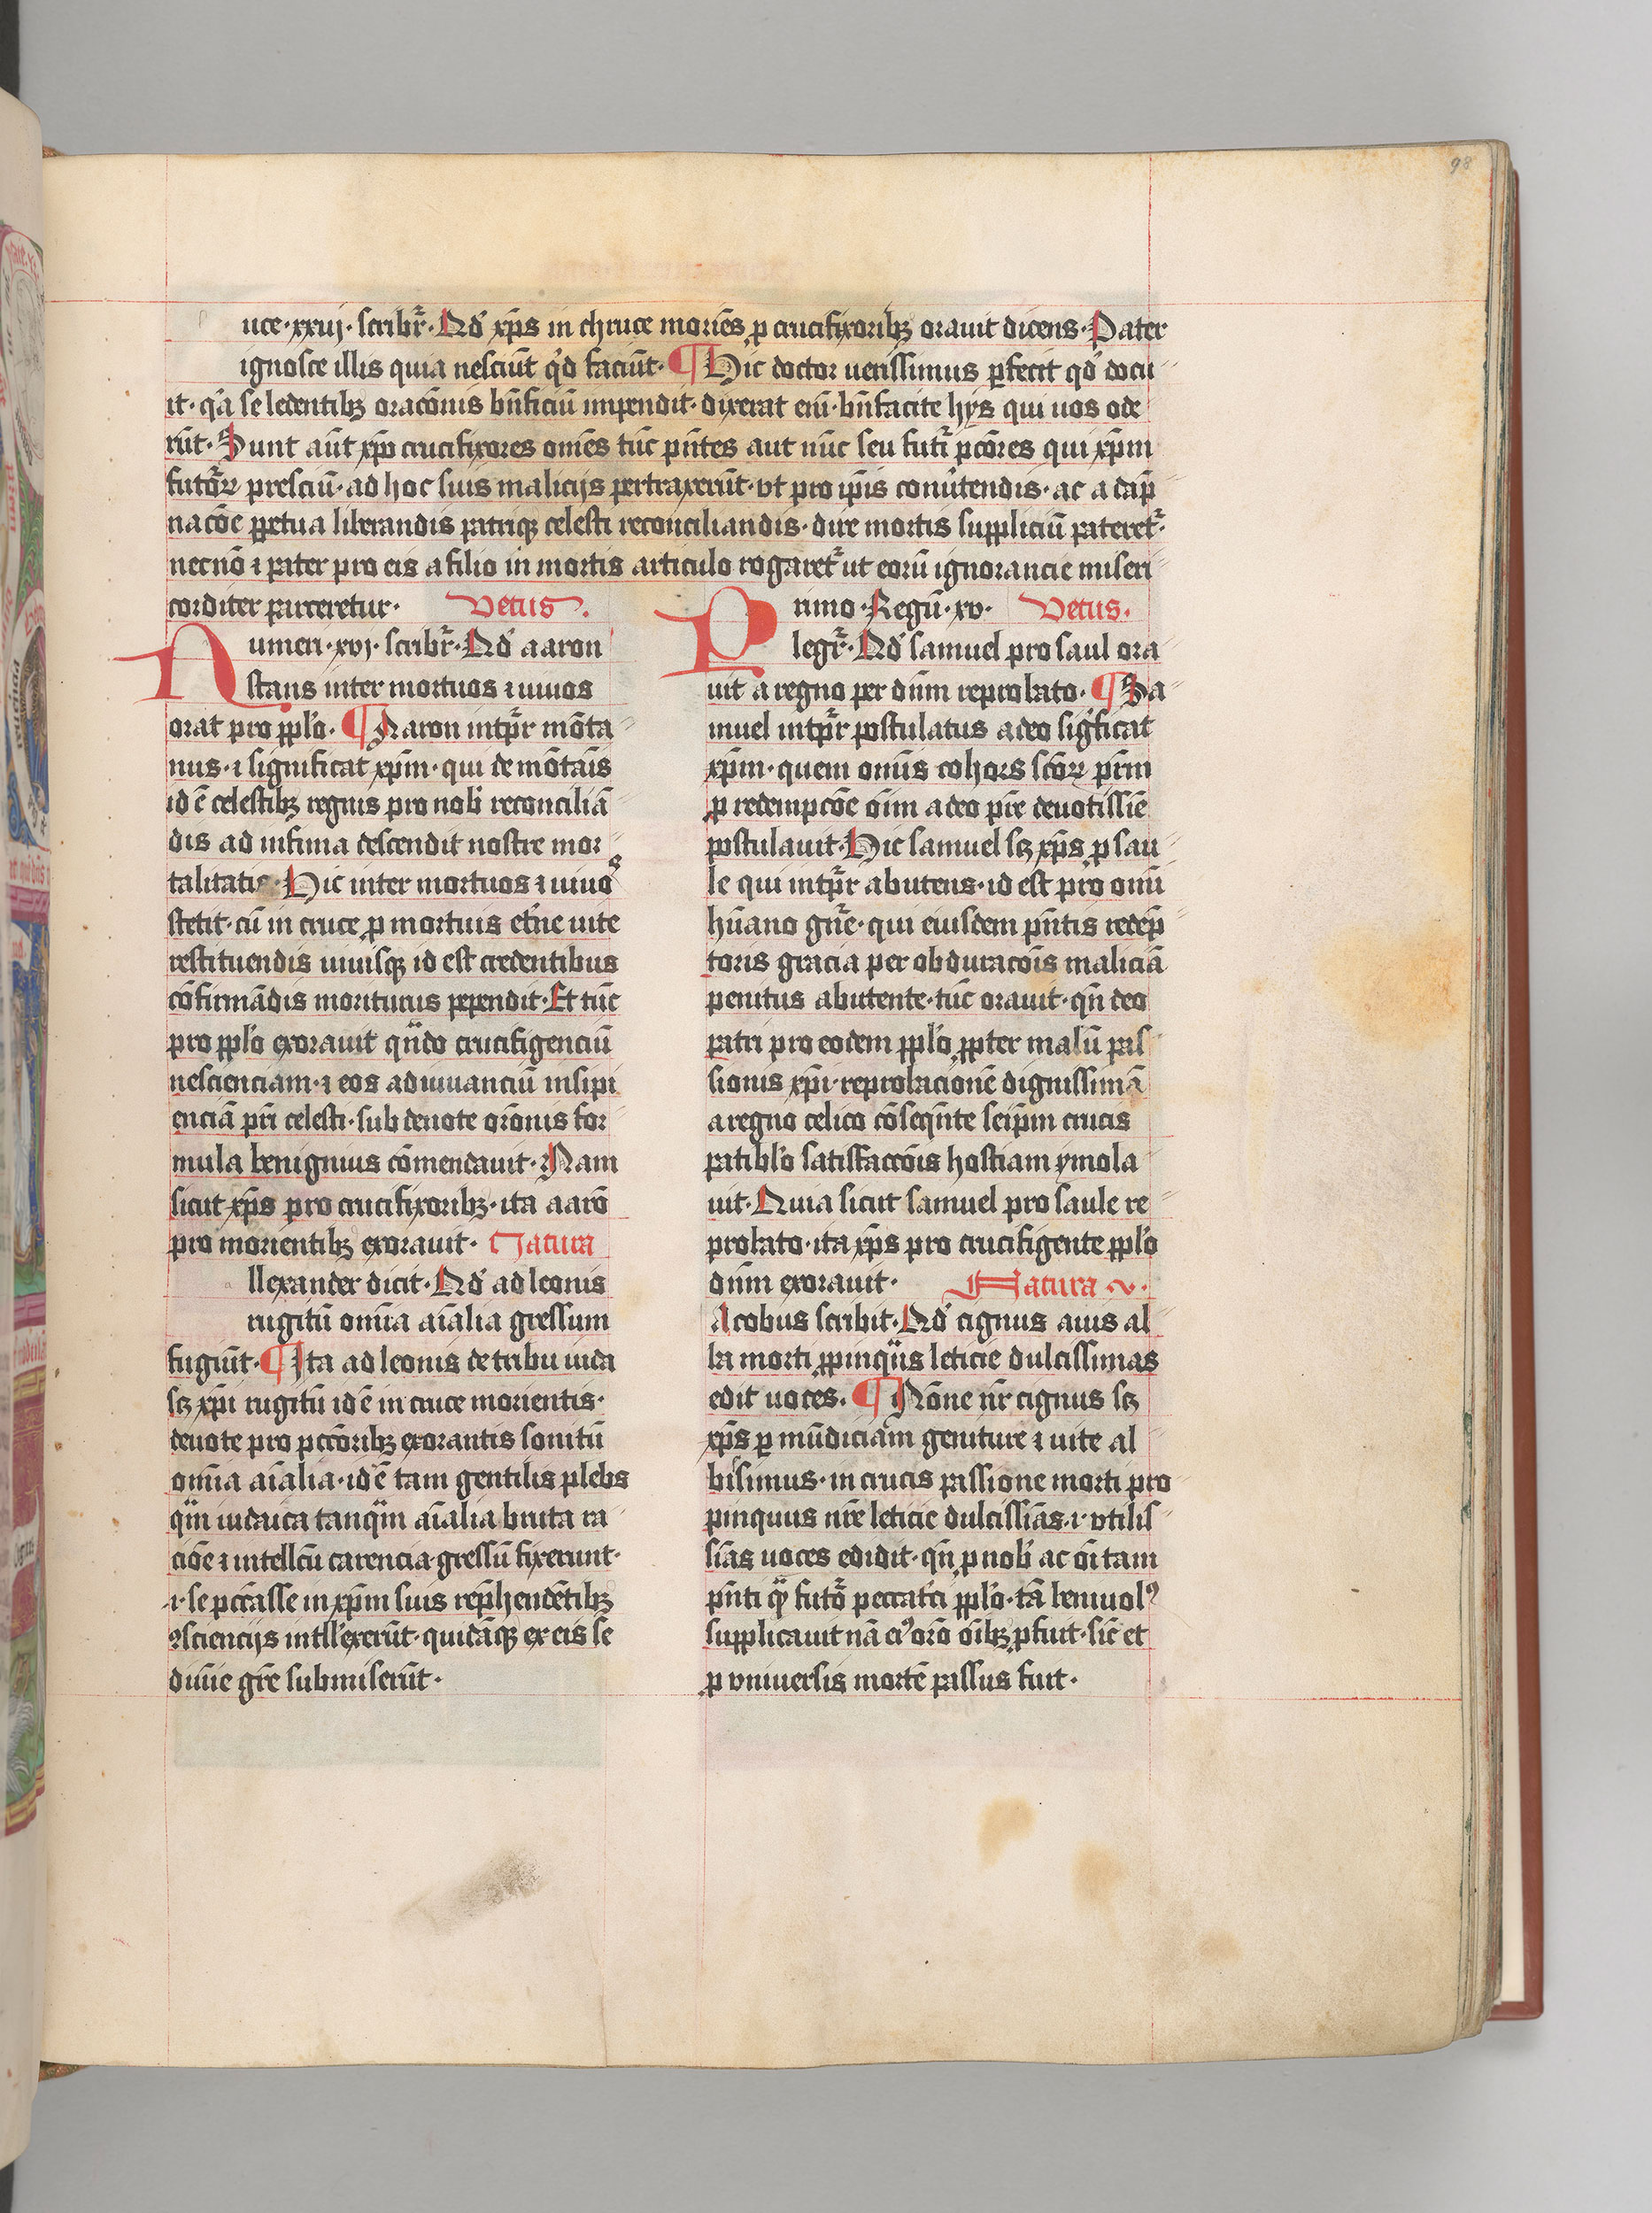 98
uce·xxiij·scribr̄·Qd' xp̄s in chruce moriēs ꝓ crucifixoribꝫ orauit dicens·Pater
ignosce illis quia nesciūt qd' faciūt·¶Hic doctor uerissimus ꝑfecit qd' docu
it·q'a se ledentibꝫ orac̄onis bn̄ficiū impendit·dixerat eni̅·bn̄facite hijs qui uos ode
rūt·Sunt aūt xp̄o crucifixores om̄es tūc pn̄tes aut nūc seu futr̄i pc̄ores qui xp̄m
futōꝝ presciū·ad hoc suis malicijs pertraxerūt·vt pro ip̄is conūtendis·ac a dap̄
nac̄oe ꝑpetua liberandis patriqꝫ celesti reconciliandis·dire mortis suppliciū pateret̄·
necnō ⁊ pater pro eis a filio in mortis articulo rogaret̄ ut eorū ignorancie miseri
corditer parceretur· Vetus.
Numeri·xvj·scribr̄·Qd' aaron
stans inter mortuos ⁊ uiuos
orat pro pplo·¶Aaron intp̄r mōta
nus·⁊ significat xp̄m·qui de mōtāis
id ē celestibꝫ regnis pro nob' reconciliā
dis ad infima descendit nostre mor
talitatis·Hic inter mortuos ⁊ uiuos
stetit·cū in cruce ꝓ mortuis et̄ne uite
restituendis uiuisqꝫ id est credentibus
cōfirmādis moriturus pependit·Et tūc
pro pplo exorauit qn̄do crucifigenciū
nescienciam·⁊ eos adiuuanciū insipi
enciā pr̄i celesti·sub deuote or̄onis for
mula benignius cōmendauit·Nam
sicut xp̄s pro crucifixoribꝫ·ita aarō
pro morientibꝫ exorauit· Natura
llexander dicit·Qd' ad leonis
rugitū om̄ia aīalia gressum
figiūt·¶Ita ad leonis de tribu iuda
sꝫ xp̄i rugitū id ē in cruce morientis·
deuote pro pccōribꝫ exorantis sonitū
om̄ia aīalia·id ē tam gentilis plebs
qm̄ iudaica tanqm̄ aīalia bruta ra
cioē ⁊ intellcū carencia gressū fixerunt·
⁊·se pccasse in xp̄m suis rep̄hendētibꝫ
ꝯsciencijs intll'exerūt·quidāqꝫ ex eis se
diuīe gr̄e submiserūt·
Primo·Regū·xv· Vetus.
legr̄·Qd' samuel pro saul ora
uit a regno per dn̄m reprobato·¶Sa
muel intp̄r postulatus a deo sig'ficat
xp̄m·quem om̄is cohors sc̄oꝝ pr̄m
ꝓ redempc̄oe oīm a deo pr̄e deuotissīe
postulauit·Hic samuel sꝫ xp̄s ꝓ sau
le qui intp̄r abutens·id est pro omī
hūano gn̄e·qui eiusdem pn̄tis redēp
toris gracia per obdurac̄ois maliciā
penitus abutente·tūc orauit·qn̄ deo
patri pro eodem pplo ꝓpter malū pas
sionis xp̄i·reprobacionē dignissimā
a regno celico cōseqn̄te seip̄m crucis
patiblo satisfacc̄ois hostiam ymola
uit·Quia sicut samuel pro saule re
probato·ita xp̄s pro crucifigente pplo
dn̄m exorauit· Natura v.
Acobus scribit·Qd' cignus auis al
ba morti ꝓpinquꝰs leticie dulcissimas
edit uoces.¶Nōne nr̄ cignus sꝫ
xp̄s ꝑ mūdiciam geniture ⁊ uite al
bis̄simus·in crucis passione morti pro
pinquus nr̄e leticie dulcissīas·⁊·vtilis
sīas uoces edidit·qn̄ ꝓ nob' ac oī tam
pn̄ti qm̄ futō peccatr̄i pplo·tā beniuolꝰ
supplicauit nā ciꝰ or̄o oībꝫ ꝓfuit·sic et
ꝓ vniuersis mortē passus fuit·